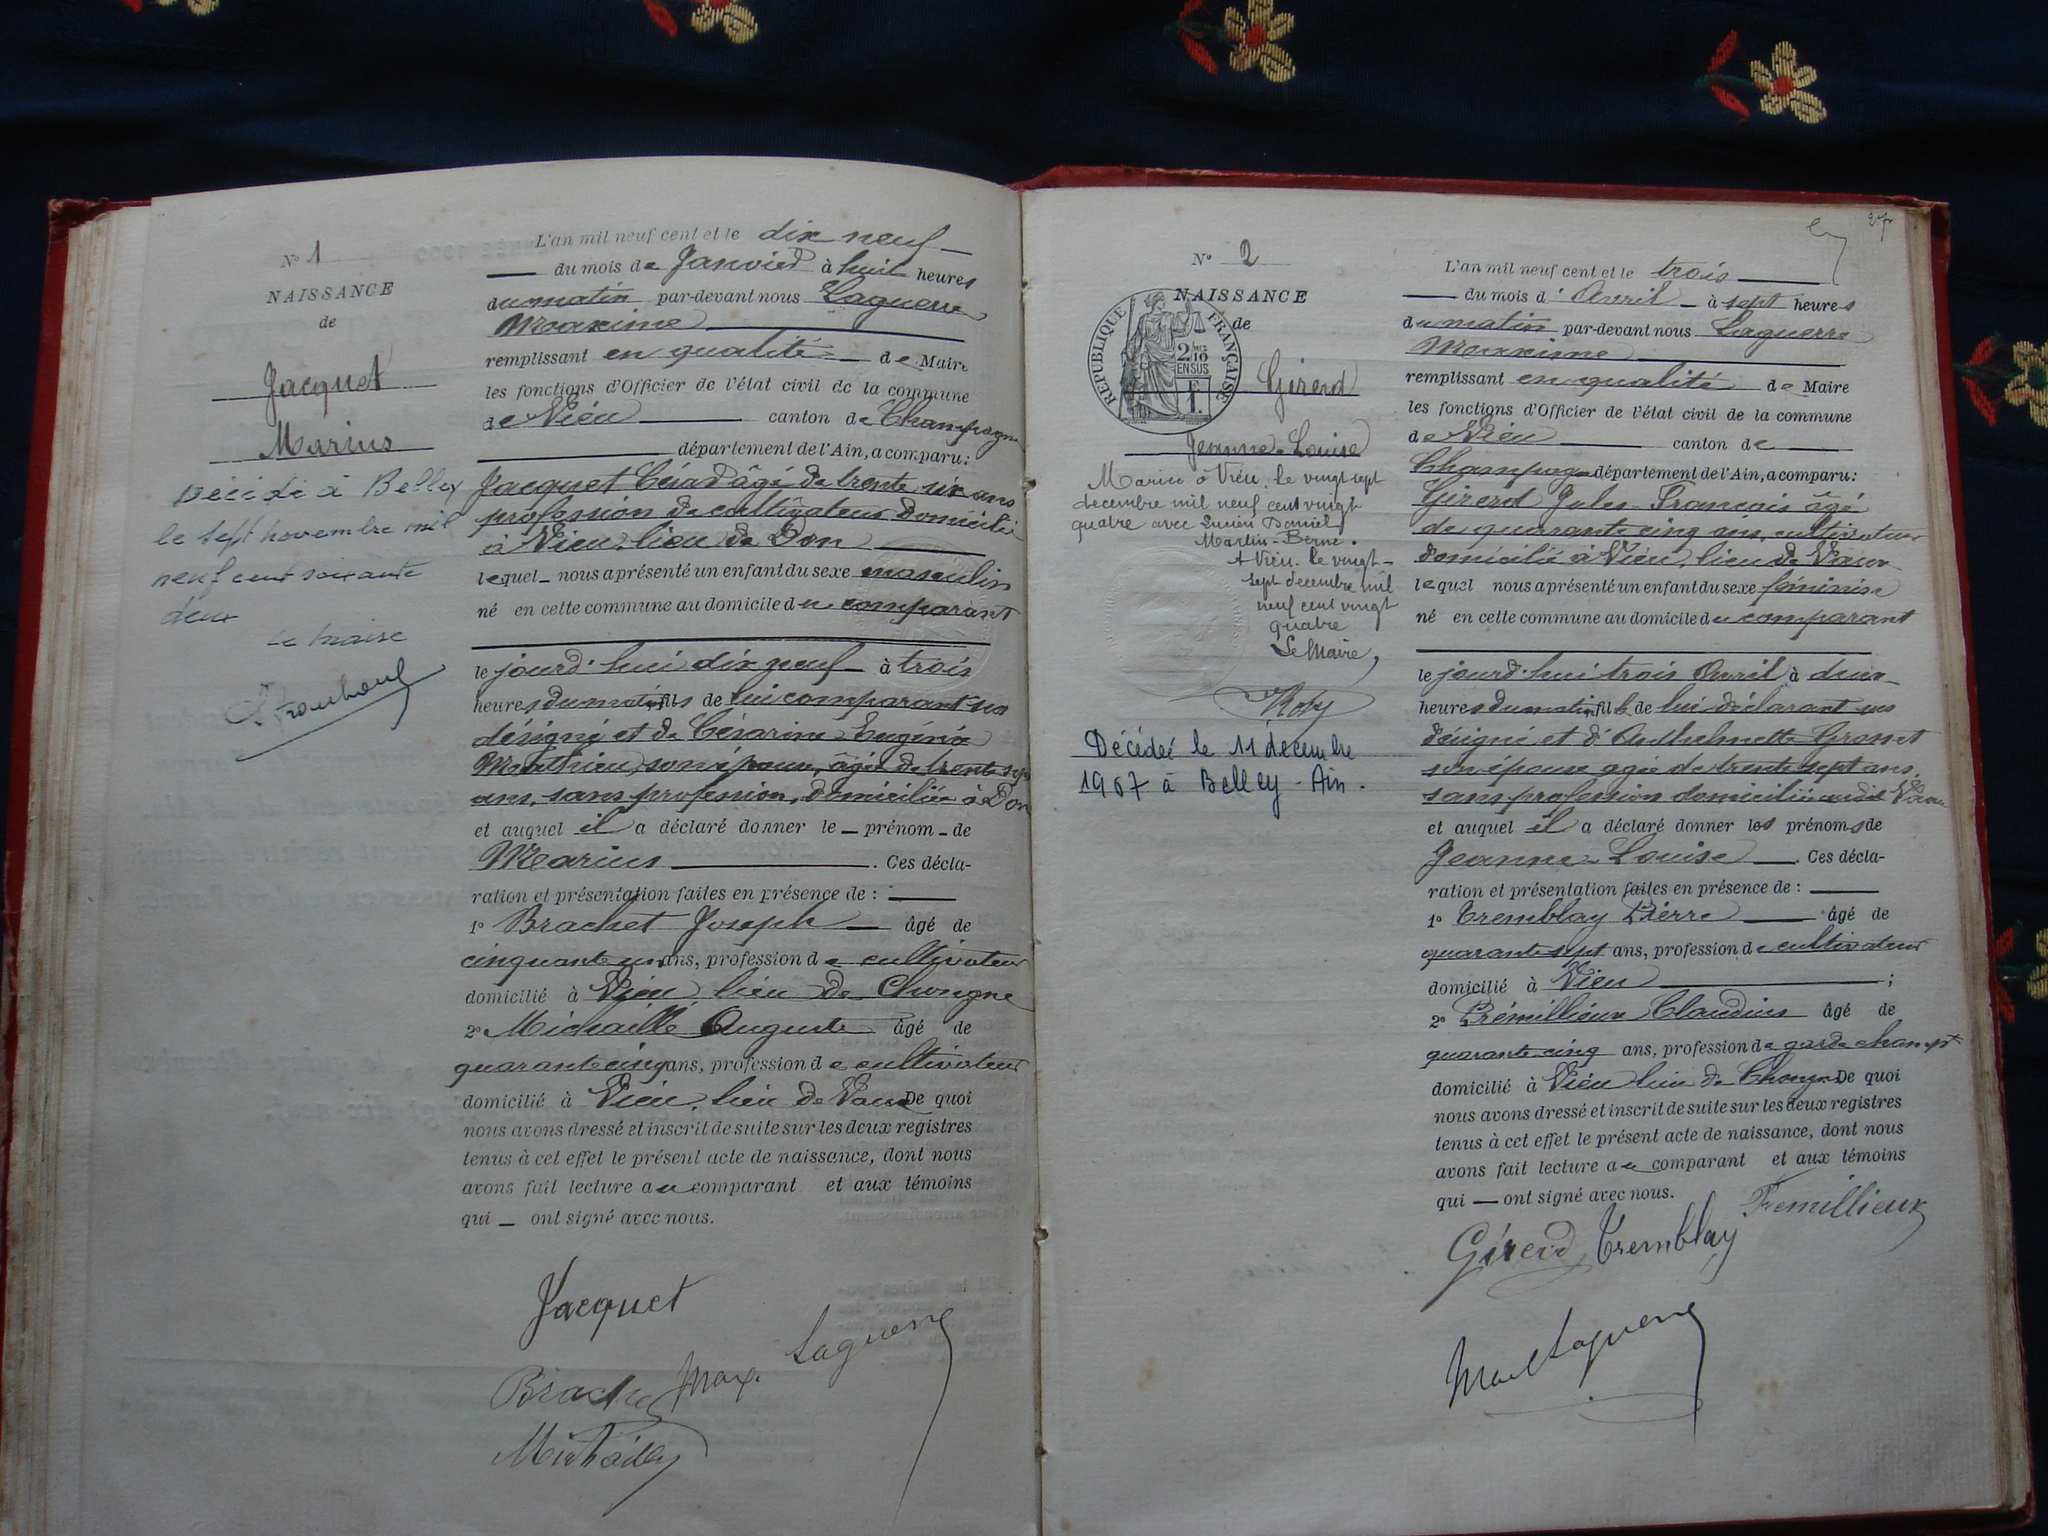 N° 1
NAISSANCE
de
Jacquet
Marius
Décédé à Belley
le sept novembre mil
neuf cent soixante
deux
Le Maire
L'an mil neuf cent et le dix neuf
du mois de Janvier à huit heures
du matin par-devant nous Laguerre
Maxime
remplissant en qualité de Maire
les fonctions d'Officier de l'état civil de la commune
de Vieu canton de Champagne
département de l'Ain, a comparu :
Jacquet César âgé de trente six ans
profession de cultivateur domicilié
à Vieu, lieu de Don
lequel nous a présenté un enfant du sexe masculin
né en cette commune au domicile du comparant
le jourd'hui dix neuf à trois
heures du matin fils de lui comparant sus
désigné et de Césarine Eugénie
Mathieu, son épouse, âgée de trente sept
ans, sans profession, domiciliée à Don
et auquel il a déclaré donner le prénom de
Marius . Ces décla-
ration et présentation faites en présence de :
1° Brachet Joseph âgé de
cinquante un ans, profession de cultivateur
domicilié à Vieu, lieu de Chongne
2° Michaille Auguste âgé de
quarante cinq ans, profession de cultivateur
domicilié à Vieu, lieu de Vaux De quoi
nous avons dressé et inscrit de suite sur les deux registres
tenus à cet effet le présent acte de naissance, dont nous
avons fait lecture au comparant et aux témoins
qui — ont signé avec nous.
Jacquet
Max. Laguerre
Brachet
Michaille
27
N° 2
NAISSANCE
de
RÉPUBLIQUE FRANÇAISE
2/10
EN SUS
Girerd
Jeanne-Louise
Mariée à Vieu, le vingt sept
decembre mil neuf cent vingt
quatre avec Lucien Daniel
Martin-Berne.
A Vieu, le vingt-
sept decembre mil
neuf cent vingt
quatre
Le Maire,
Roby
Décédée le 11 décembre
1967 à Belley - Ain.
L'an mil neuf cent et le trois
du mois d'Avril à sept heures
du matin par-devant nous Laguerre
Maxime
remplissant en qualité de Maire
les fonctions d'Officier de l'état civil de la commune
de Vieu canton de
Champagne département de l'Ain, a comparu :
Girerd Jules François âgé
de quarante cinq ans, cultivateur
domicilié à Vieu, lieu de Vaux
lequel nous a présenté un enfant du sexe féminin
né en cette commune au domicile du comparant
le jourd'hui trois Avril à deux
heures du matin fille de lui déclarant sus
désigné et d'Anthelmette Grosset
son épouse agée de trente sept ans,
sans profession domiciliée audit Vaux
et auquel il a déclaré donner les prénoms de
Jeanne-Louise . Ces décla-
ration et présentation faites en présence de :
1° Tremblay Pierre âgé de
quarante sept ans, profession de cultivateur
domicilié à Vieu ;
2° Prémillieux Claudius âgé de
quarante cinq ans, profession de garde champt
domicilié à Vieu lieu de Chongne De quoi
nous avons dressé et inscrit de suite sur les deux registres
tenus à cet effet le présent acte de naissance, dont nous
avons fait lecture au comparant et aux témoins
qui — ont signé avec nous.
Premillieux
Girerd Tremblay
Max Laguerre